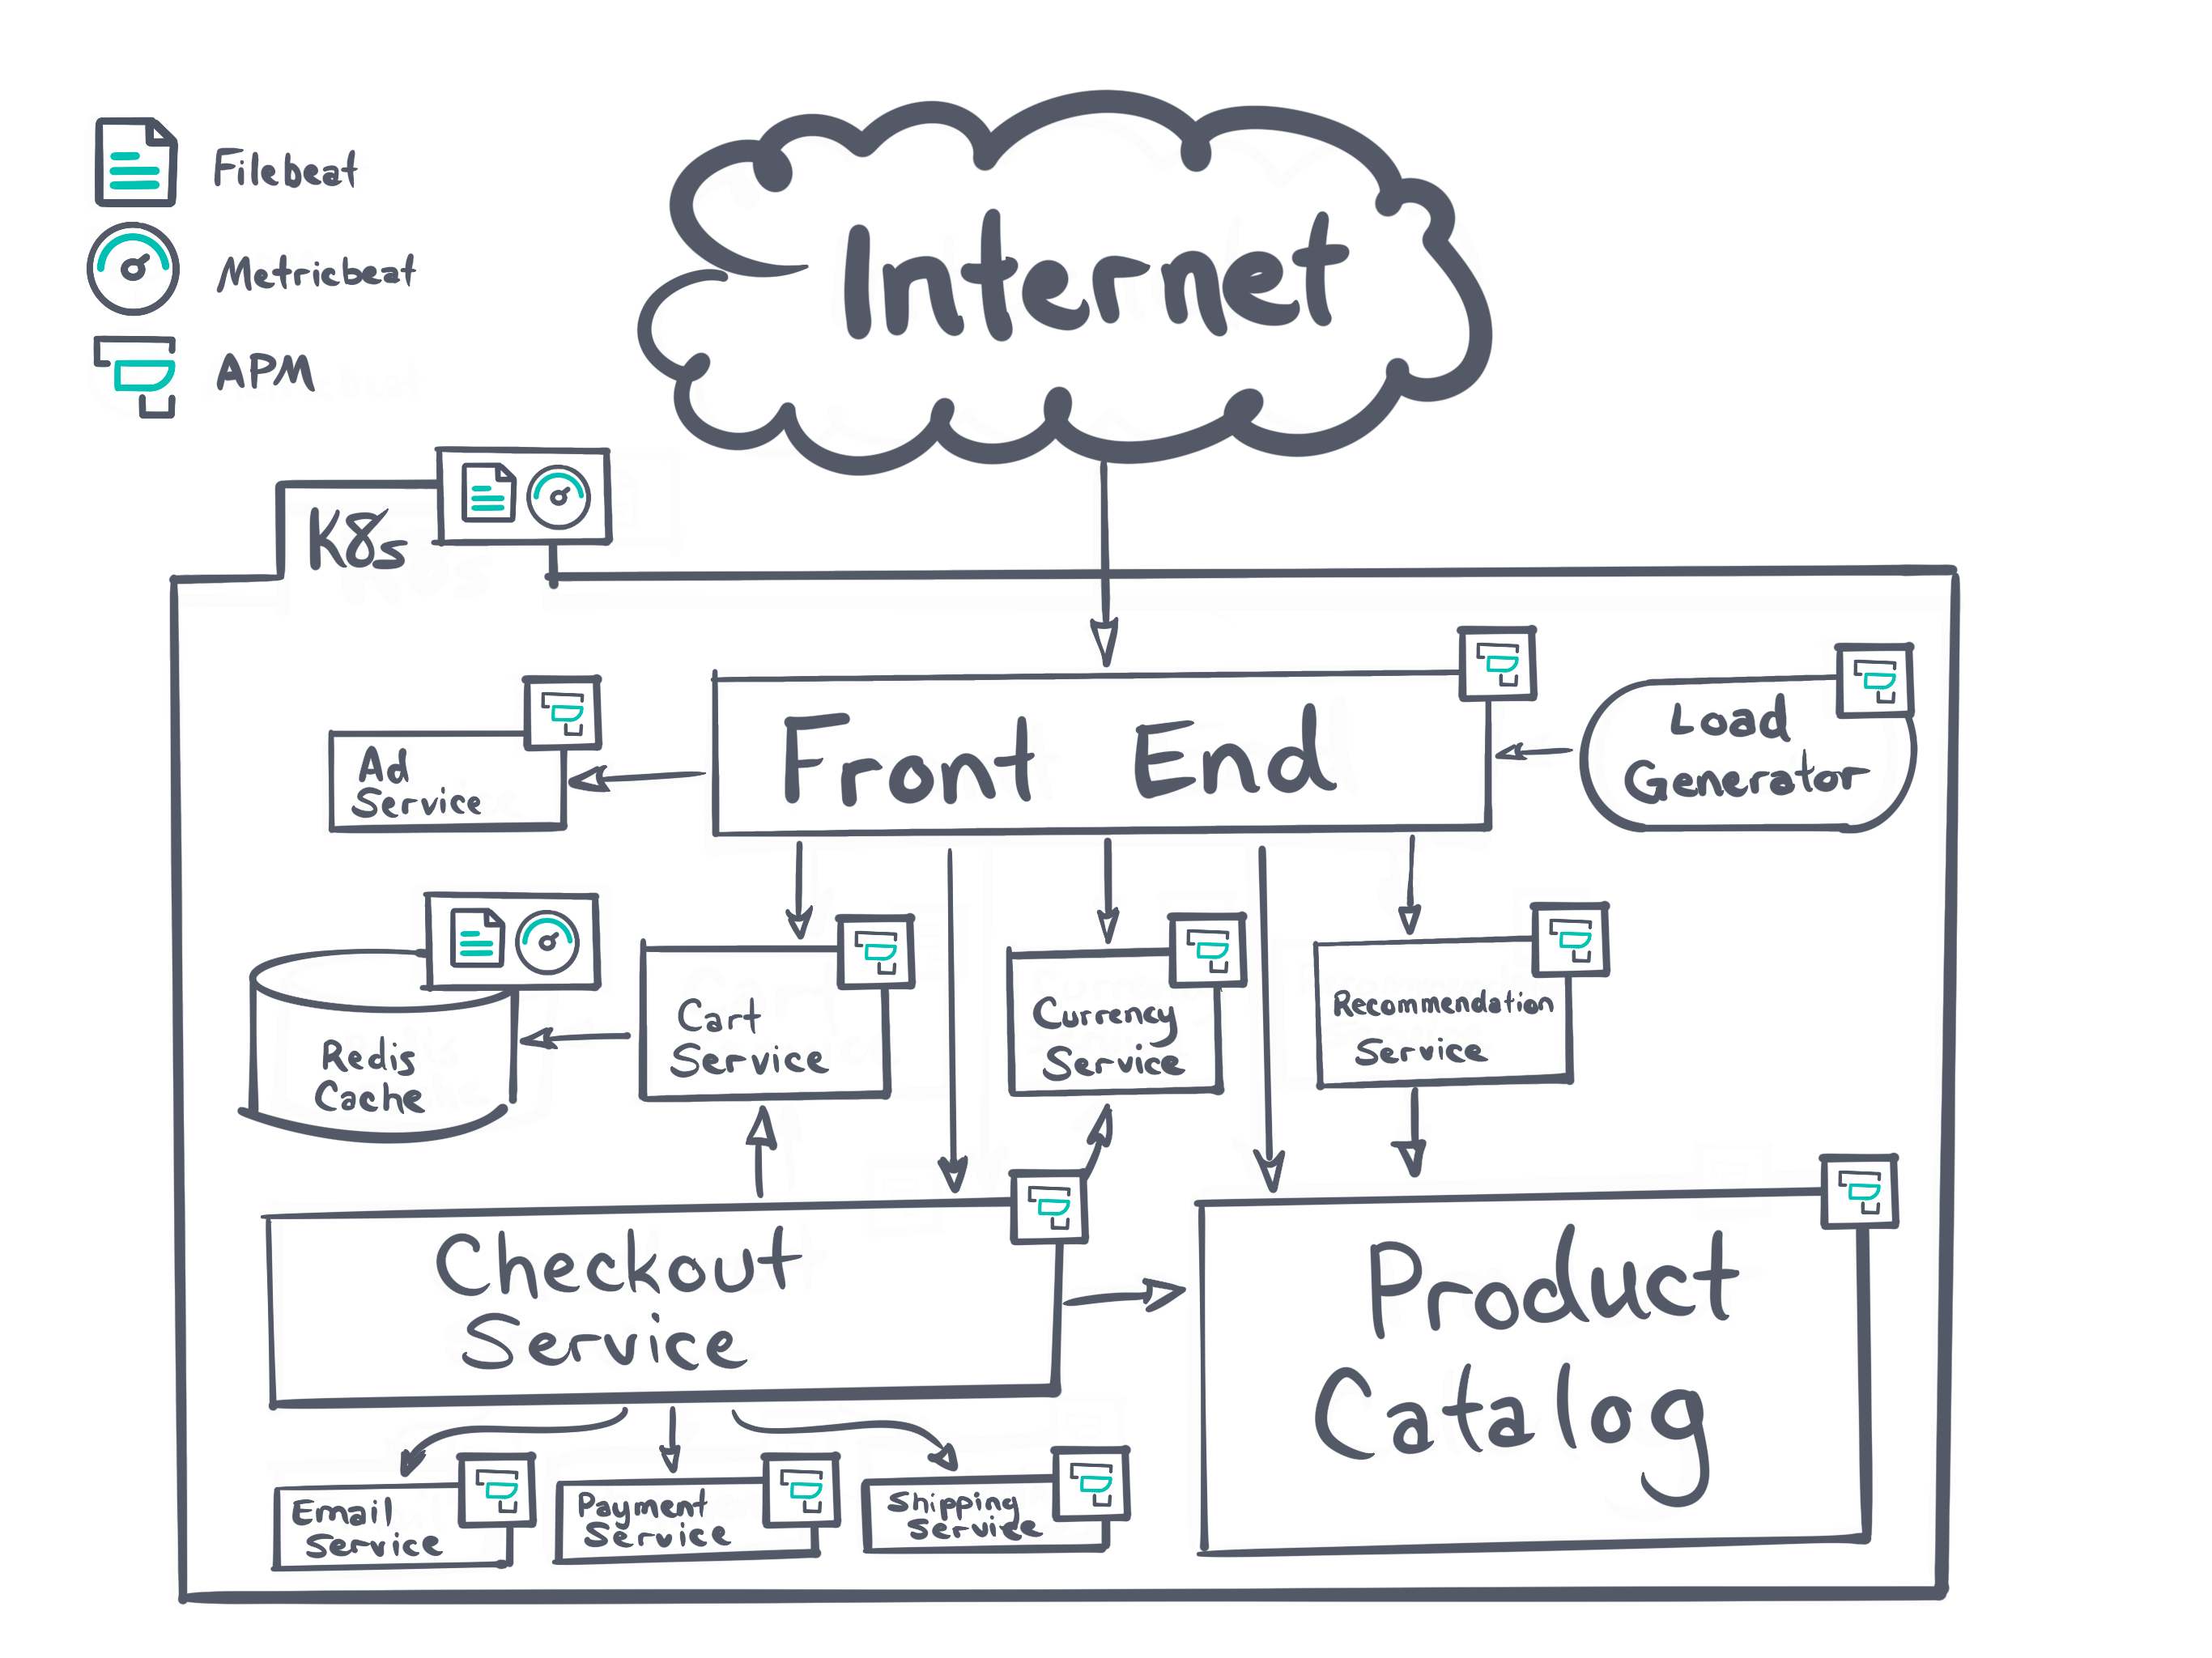 Filebeat
Metricbeat
APM
Internet
K8s
Ad
Service
Front End
Load
Generator
Redis
Cache
Cart
Service
Currency
Service
Recommendation
Service
Checkout
Service
Product
Catalog
Email
Service
Payment
Service
Shipping
Service